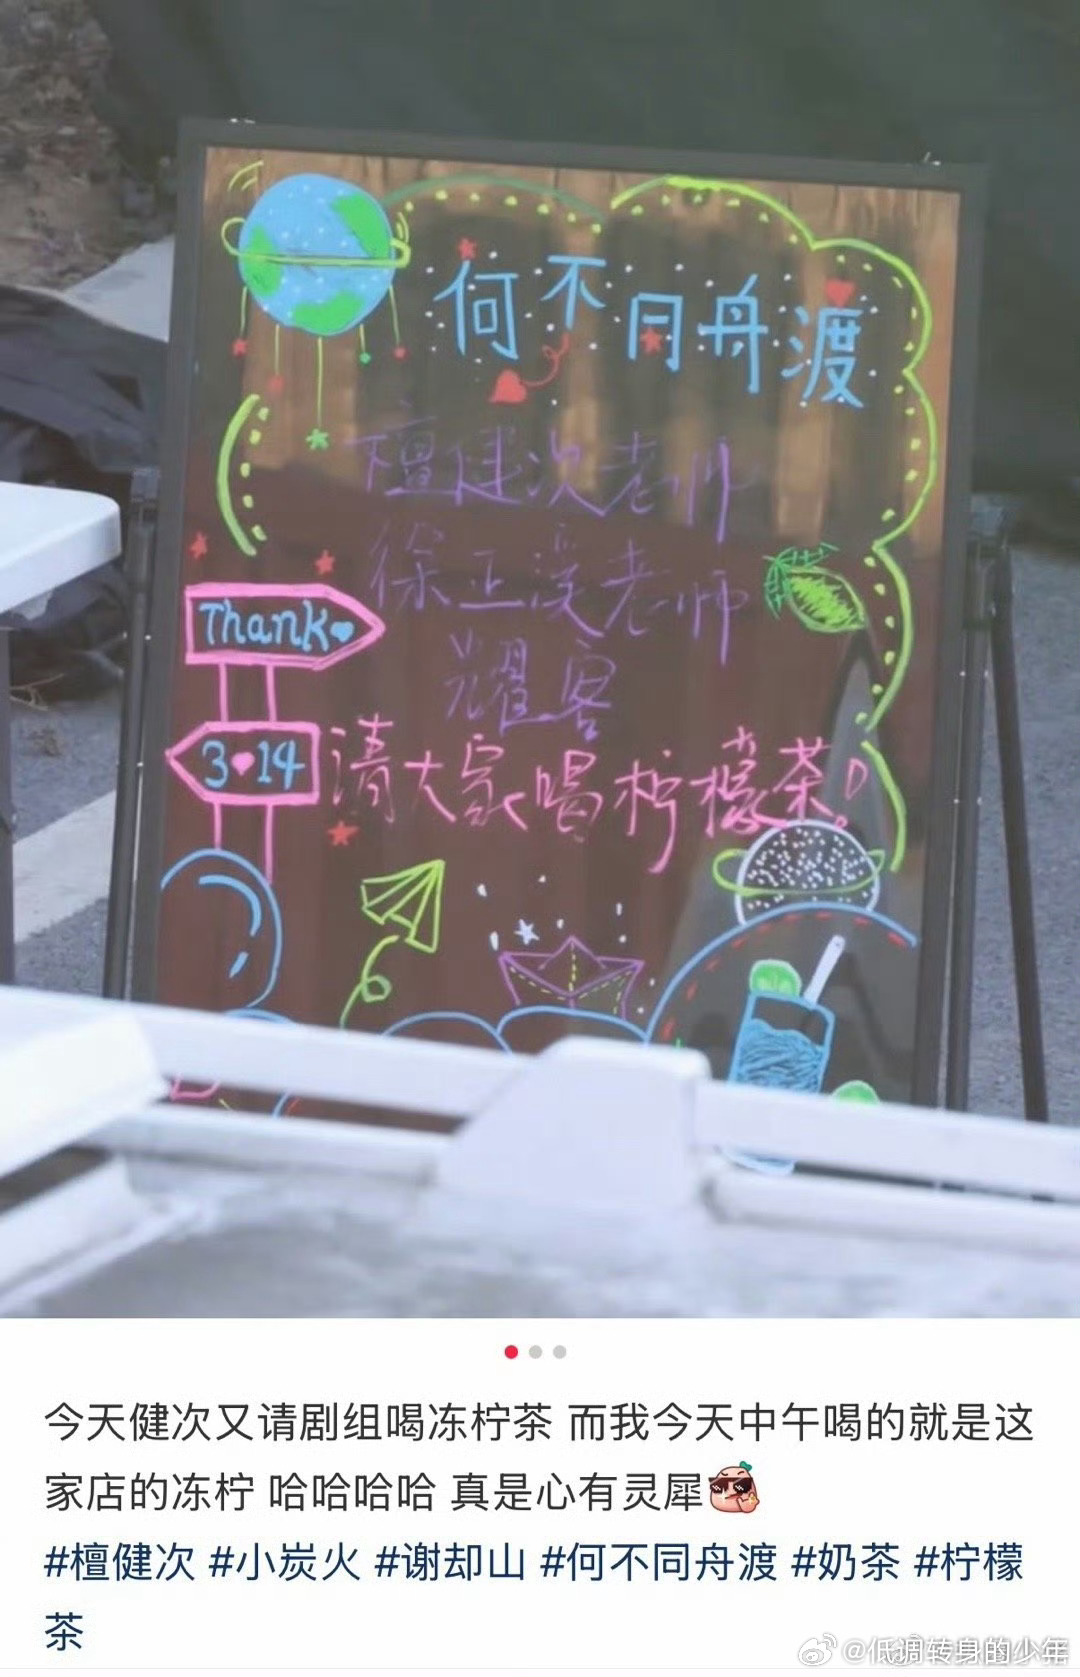 何不同舟渡
檀健次老师
徐正溪老师
耀客
Thank
3 14
请大家喝柠檬茶!
今天健次又请剧组喝冻柠茶 而我今天中午喝的就是这
家店的冻柠 哈哈哈哈 真是心有灵犀
#檀健次 #小炭火 #谢却山 #何不同舟渡 #奶茶 #柠檬
茶
@低调转身的少年